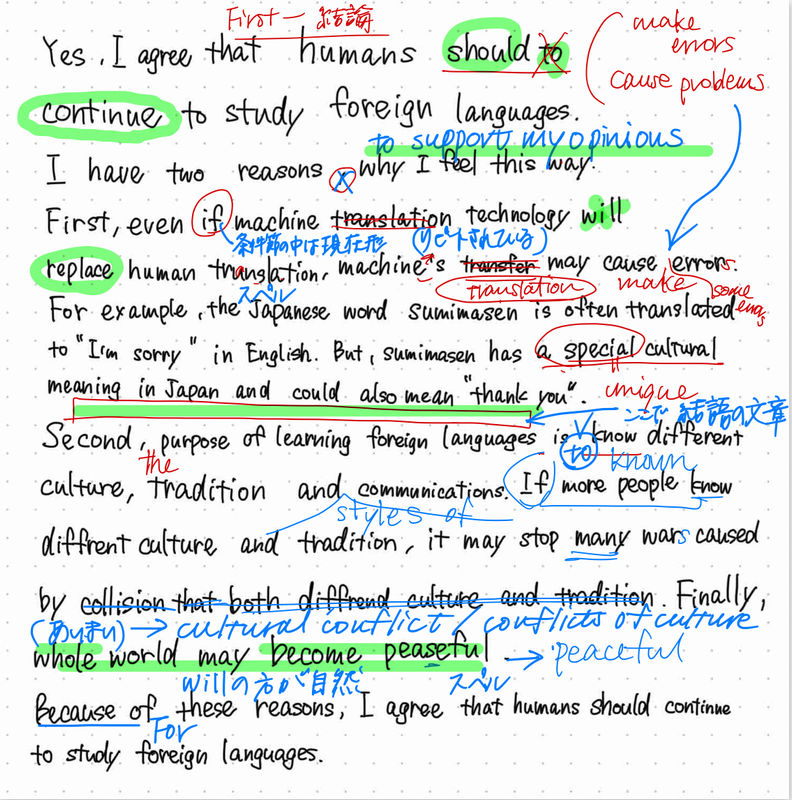 First — 結論
Yes, I agree that humans should to
make errors
cause problems
continue to study foreign languages.
to support my opinious
I have two reasons, why I feel this way.
x
First, even if machine translation technology will
条件節の中は現在形 (リピートされている)
replace human translation, machine's transfer may cause errors.
スペル translation make some erros
For example, the Japanese word sumimasen is often translated
to "I'm sorry" in English. But, sumimasen has a special cultural
meaning in Japan and could also mean "thank you".
unique
ここで 結語の文章
Second, purpose of learning foreign languages is know different
the to known
culture, tradition and communications. If more people know
styles of
diffrent culture and tradition, it may stop many wars caused
by collision that both diffrend culture and tradition. Finally,
(あいまい) → cultural conflict / conflicts of culture
whole world may become peaseful → peaceful
willの方が自然 スペル
Because of these reasons, I agree that humans should continue
For
to study foreign languages.